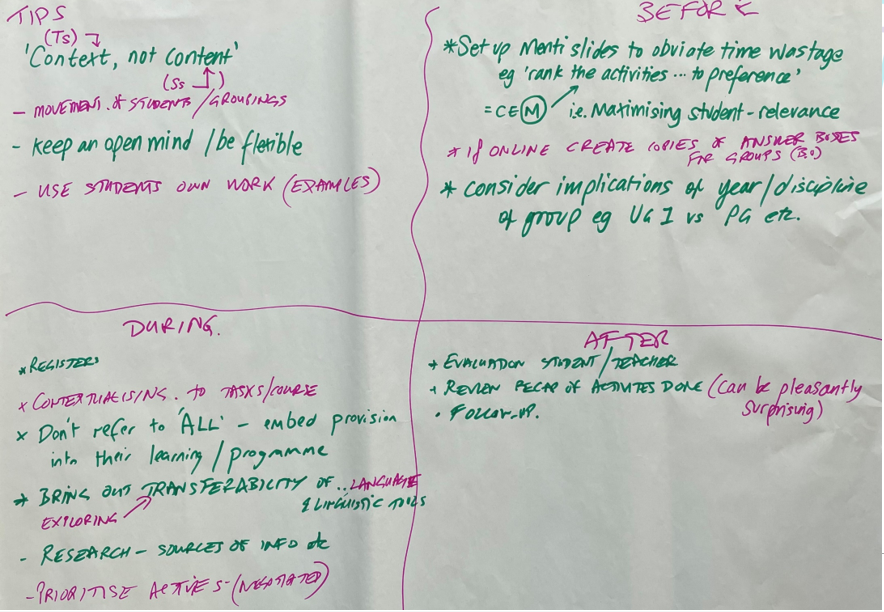 TIPS
(Ts)
'Context, not content'
(Ss)
- MOVEMENT OF STUDENTS / GROUPINGS
- Keep an open mind / be flexible
- USE STUDENTS OWN WORK (EXAMPLES)
BEFORE
* Set up Menti slides to obviate time wastage
eg 'rank the activities ... to preference'
= CE(M) i.e. Maximising student-relevance
* If ONLINE CREATE COPIES OF ANSWER BOXES
FOR GROUPS (BO)
* Consider implications of year/discipline
of group eg UG 1 vs PG etc.
DURING.
* REGISTERS
* CONTEXTUALISING. TO TASKS/COURSE
* Don't refer to 'ALL' - embed provision
into their learning / programme
* BRING OUT TRANSFERABILITY OF .. LANGUAGE
& LINGUISTIC TOOLS
EXPLORING
- RESEARCH - SOURCES OF INFO etc
- PRIORITISE ACTIVIES - (NEGOTIATED)
AFTER
* EVALUATION STUDENT/TEACHER
* REVIEW RECAP OF ACTIVITES DONE (Can be pleasantly
surprising)
• FOLLOW-UP.